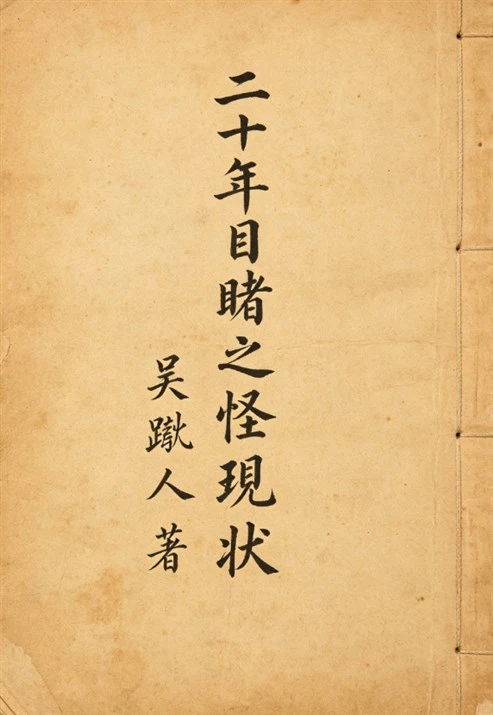 二十年目睹之怪現状
吴蹴人著